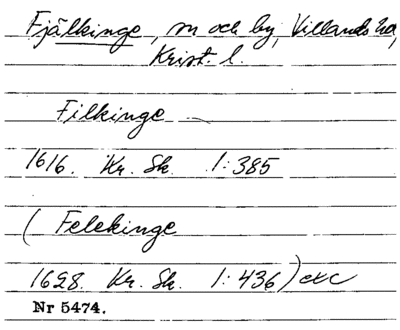 Fjälkinge, sn och by, Villands hd,
Krist. l.
Filkinge
1616. Kr. Sk. 1:385
( Felekinge
1628. Kr. Sk. 1:436) exc
Nr 5474.